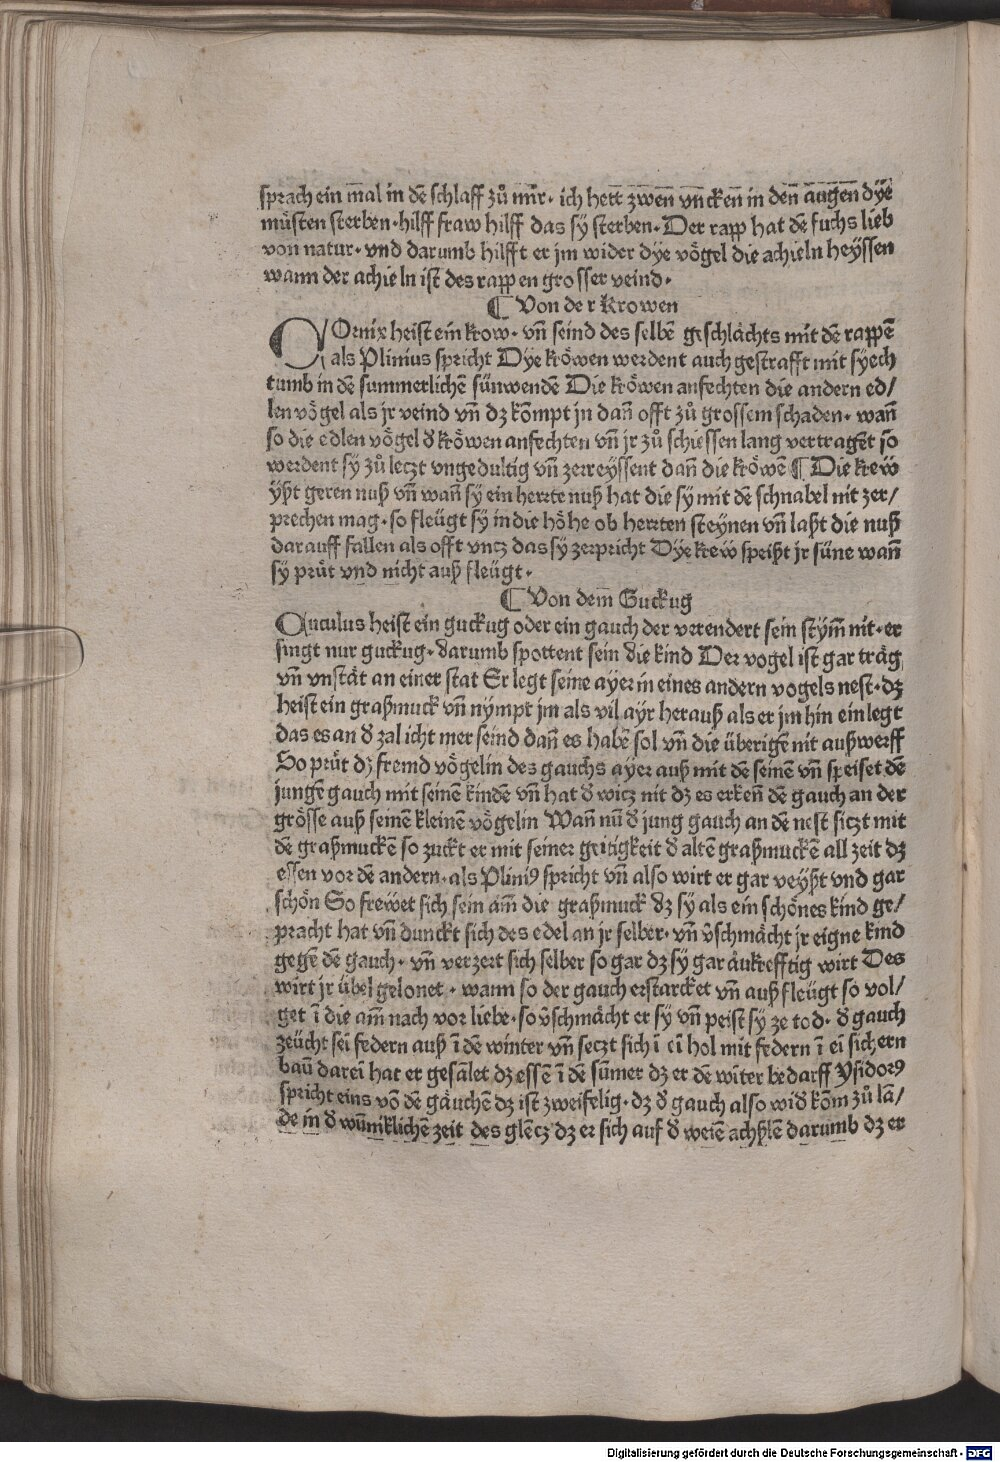 sprach ein mal in dē schlaff zů mir· ich hett zwen vncken in den augen dye
můsten sterben·hilff fraw hilff das sy sterben· Der rapp hat dē fuchs lieb
von natur· vnd darumb hilfft er jm wider dye vögel die achieln heyssen
wann der achieln ist des rappen grosser veind·
¶ Von der Krowen
COrnix heist ein krow· vn̄ seind des selbē geschlächts mit dē rappē
als Plinius spricht Dye kröwen werdent auch gestrafft mit syech
tumb in dē summerlichē sünwendē Die kröwen anfechten die andern ed/
len vögel als jr veind vn̄ dz kompt jn dan̄ offt zů grossem schaden· wan̄
so die edlen vögel d̕ kröwen anfechten vn̄ jr zů schiessen lang vertragēt so
werdent sy zů leczt vngedultig vn̄ zerreyssent dan̄ die kröwē ¶ Die krew̎
yßt geren nuß vn̄ wan̄ sy ein herrte nuß hat die sy mit dē schnabel nit zer/
prechen mag· so fleügt sy in die höhe ob herrten steynen vn̄ laßt die nuß
darauff fallen als offt vncz das sy zerpricht Dye krew̎ speißt jr süne wan̄
sy prüt vnd nicht auß fleügt·
¶ Von dem Guckug
CUculus heist ein guckug oder ein gauch der verendert sein stym̄ nit· er
singt nur guckug· darumb spottent sein die kind Der vogel ist gar träg
vn̄ vnstät an einer stat Er legt seine ayer in eines andern vogels nest· dz
heist ein graßmuck vn̄ nympt jm als vil ayr herauß als er jm hin ein legt
das es an d̕ zal icht mer seind dan̄ es habē sol vn̄ die überigē nit außwerff
So prüt dz fremd vögelin des gauchs ayer auß mit dē seinē vn̄ speiset dē
jungē gauch mit seinē kindē vn̄ hat d̕ wicz nit dz es erken̄ dē gauch an der
grösse auß seinē kleinē vögelin Wan̄ nū d̕ jung gauch an dē nest siczt mit
dē graßmuckē so zuckt er mit seiner geitigkeit d̕ altē graßmuckē all zeit dz
essen vor dē andern· als Pliniꝰ spricht vn̄ also wirt er gar veyßt vnd gar
schön So frewet sich sein am̄ die graßmuck dz sy als ein schönes kind ge/
pracht hat vn̄ dunckt sich des edel an jr selber· vn̄ v̕schmächt jr eigne kind
gegē dē gauch· vn̄ verzert sich selber so gar dz sy gar äukrefftig wirt Des
wirt jr übel gelonet· wann so der gauch erstarcket vn̄ auß fleügt so vol/
get ī die am̄ nach vor liebe· so v̕schmächt er sy vn̄ peist sy ze tod· d̕ gauch
zeücht sei federn auß ī dē winter vn̄ seczt sich ī eī hol mit federn ī ei sichern
bau darei hat er gesālet dz essē ī dē sūmer dz er dē wīter bedarff Ysidorꝰ
spricht eins vō dē gäuchē dz ist zweifelig· dz d̕ gauch also wid̕ kōm zů lā/
de in d̕ wūniklichē zeit des glēcz dz er sich auf d̕ weiē achßlē darumb dz er
Digitalisierung gefördert durch die Deutsche Forschungsgemeinschaft - DFG